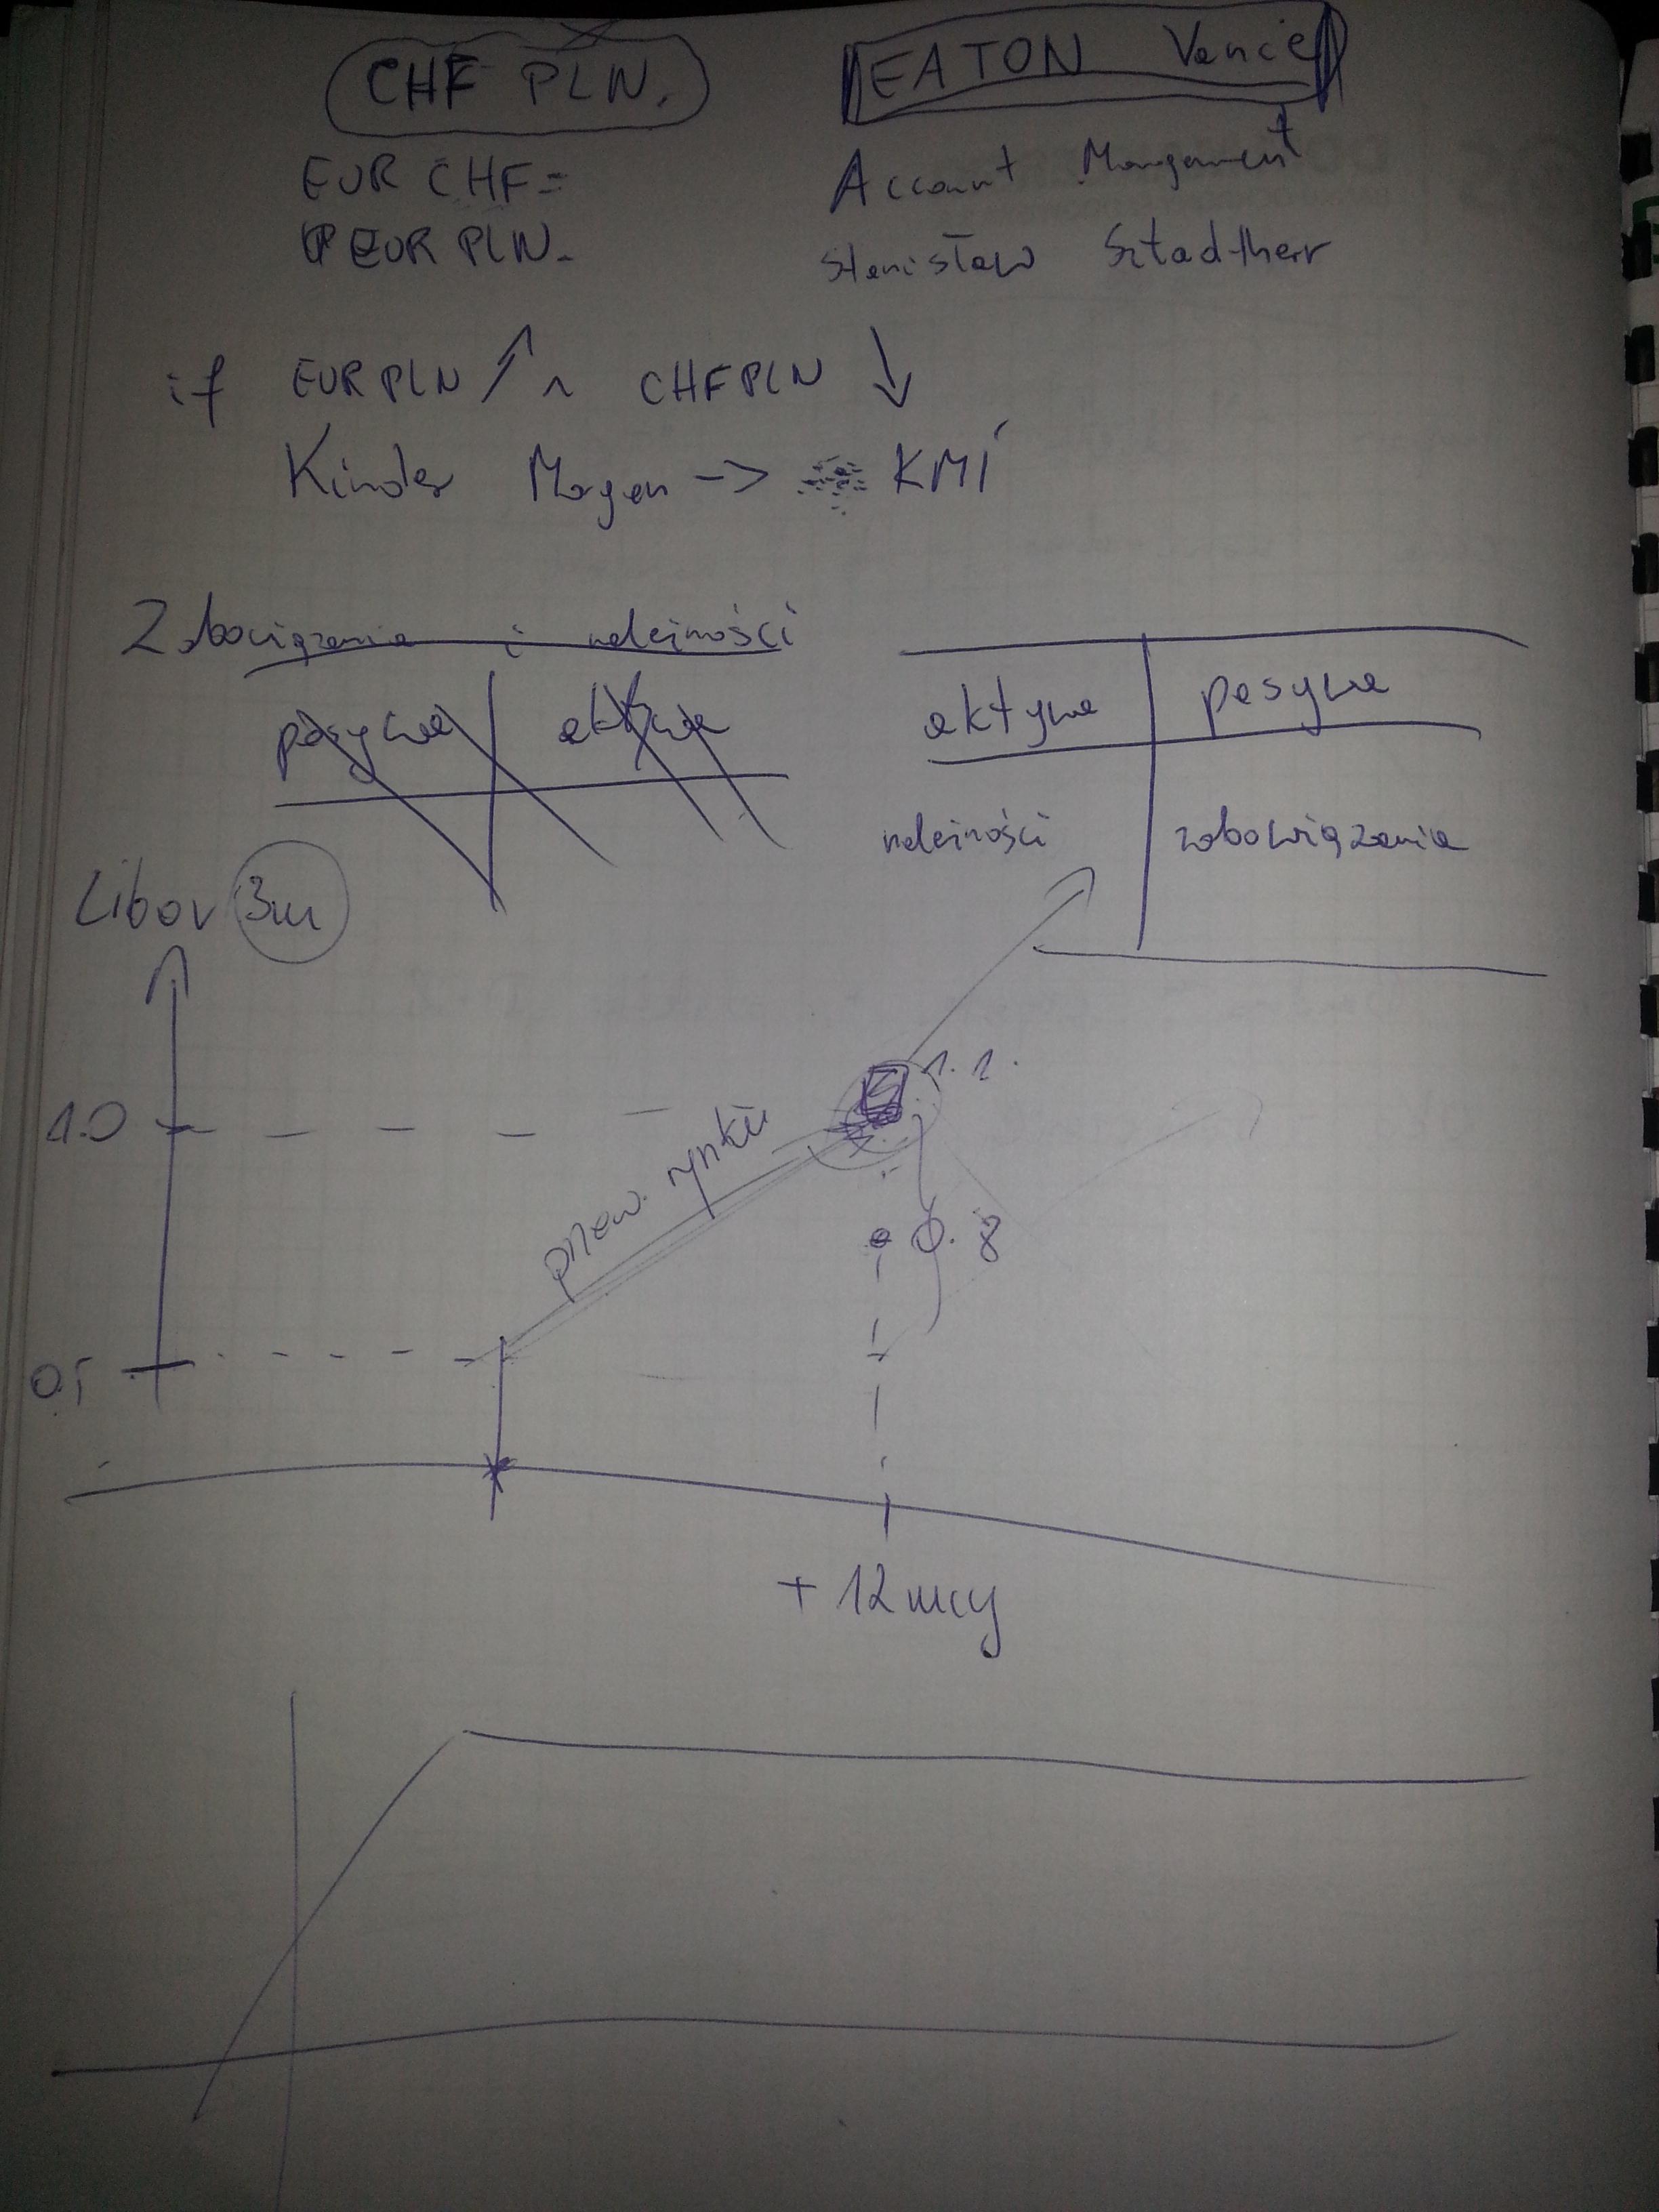 CHF PLN.
EATON Vance
EUR CHF =
EUR PLN.
Account Mangement
Stanisław Sztadtherr
if EURPLN ↗ ^ CHFPLN ↓
Kinder Morgen -> KMI
Zobowiązania i należności
pasywa aktywa
aktywa pasywa
należności zobowiązania
Libor 3m
1.0
1.1.
rynku
0.8
0.5
+ 12 mcy